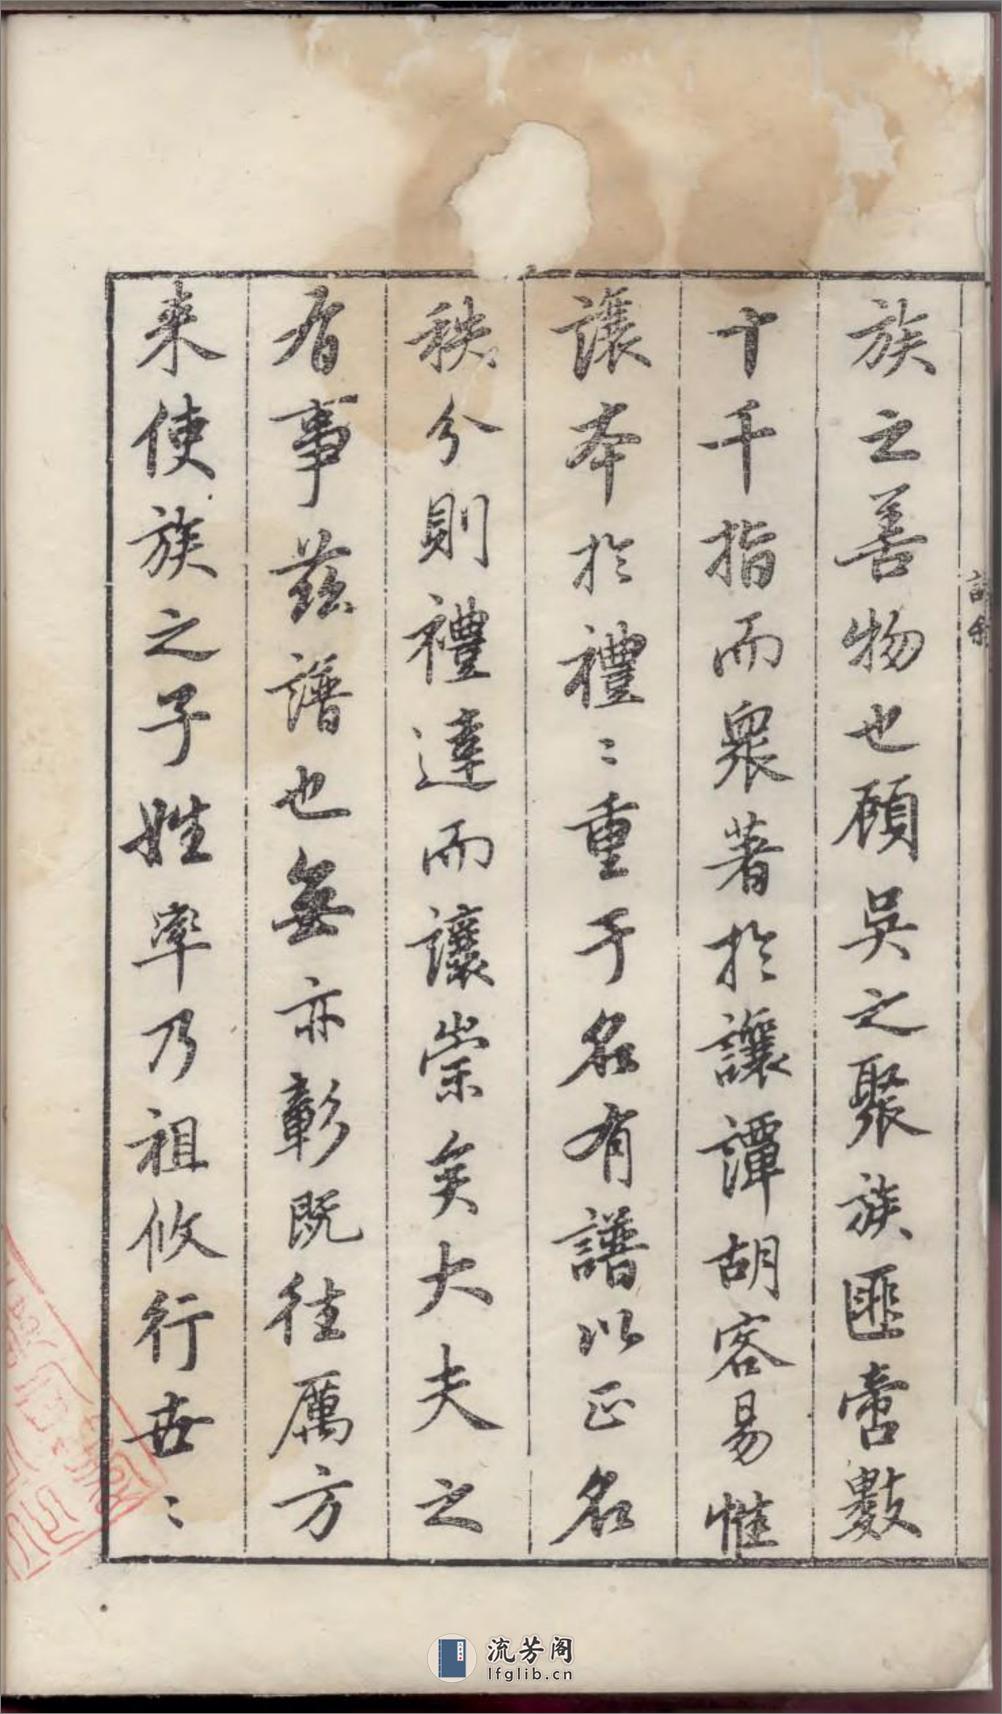 族之善物也顧吳之聚族匪啻數
十千指而衆著於讓譚胡容易惟
讓本於禮〻重于名有譜以正名
秩分則禮達而讓崇矣大夫之
有事茲譜也毋亦彰既往厲方
来使族之子姓率乃祖攸行世〻
流芳阁
lfglib.cn